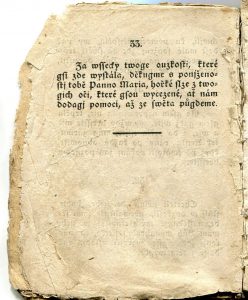 33.
Za wssecky twoge auzkosti, které
gsi zde wystála, děkugme s poníženo-
stí tobě Panno Maria, hořké slze z two-
gich očí, které gsau wycezené, ať nám
dodagj pomoci, až ze swěta půgdeme.